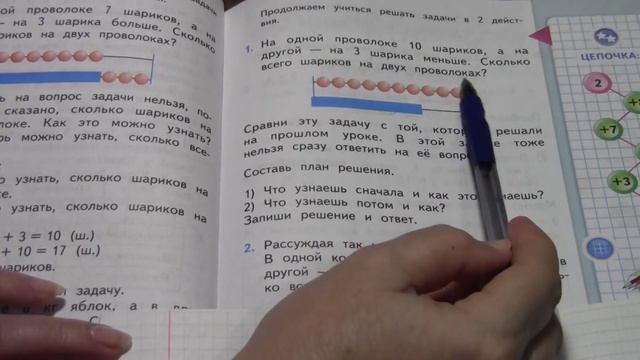 задачи
ой проволоке 7 шариков, а на
— на 3 шарика больше. Сколько
шариков на двух проволоках?
ь на вопрос задачи нельзя, по-
сказано, сколько шариков на
локе. Как это можно узнать?
рь можно узнать, сколько все-
о узнать, сколько шариков на
ке.
узнать, сколько шариков на
+ 3 = 10 (ш.)
+ 10 = 17 (ш.)
шариков.
задачу.
кг яблок, а в
Продолжаем учиться решать задачи в 2 дейст-
вия.
1. На одной проволоке 10 шариков, а на
другой — на 3 шарика меньше. Сколько
всего шариков на двух проволоках?
Сравни эту задачу с той, котор решали
на прошлом уроке. В этой за е тоже
нельзя сразу ответить на её вопр
Составь план решения.
1) Что узнаешь сначала и как это наешь?
2) Что узнаешь потом и как?
Запиши решение и ответ.
2. Рассуждая так
В одной ко
другой —
ко вс
ЦЕПОЧКА:
2
+7
+3